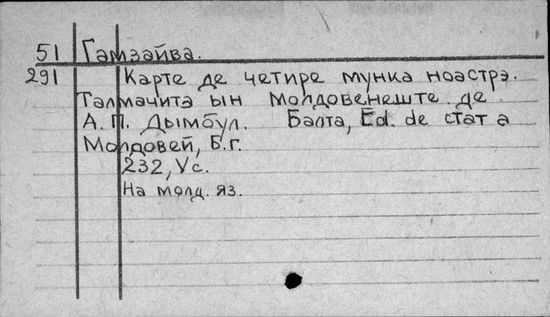 51 Гамзайва.
291 Карте де четире мунка ноастрэ.
Талмачита ын молдовенеште де
А.П. Дымбул. Балта, Ed. de стат а
Молдовей, Б.г.
232, Vс.
На молд. яз.